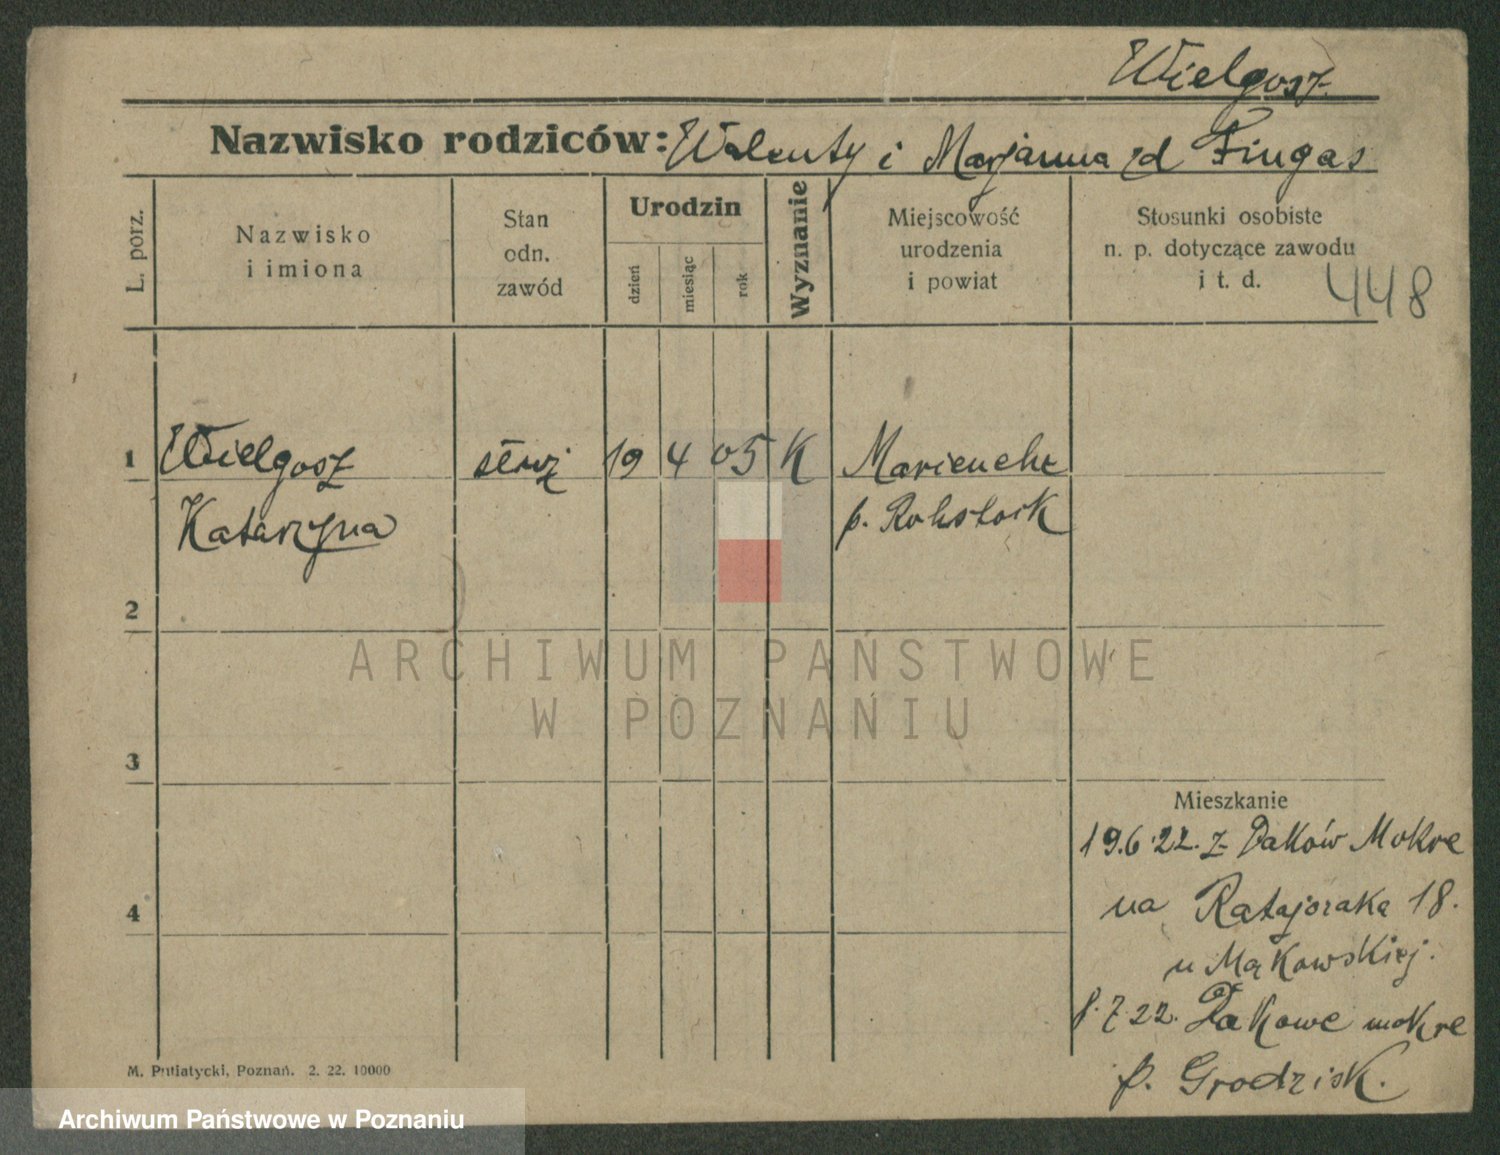 Wielgosz
Nazwisko rodziców: Walenty i Marjanna zd Fingas
L. porz.
Nazwisko
i imiona
Stan
odn.
zawód
Urodzin
dzień
miesiąc
rok
Wyznanie
Miejscowość
urodzenia
i powiat
Stosunki osobiste
n. p. dotyczące zawodu
i t. d.
448
1 Wielgosz służ 19 4 05 K
Katarzyna
p. Rohstock
2
3
4
Mieszkanie
19.6.22. z Daków Mokre
na Ratajczaka 18.
u Mąkowskiej.
8.7.22. Dakowe mokre
p. Grodzisk.
M. Putiatycki, Poznań. 2. 22. 10000
ARCHIWUM PAŃSTWOWE
W POZNANIU
Archiwum Państwowe w Poznaniu